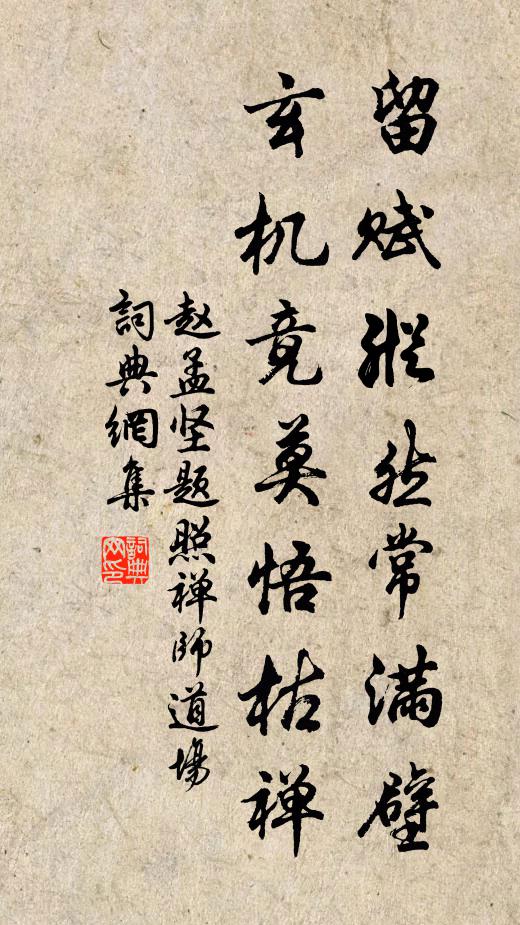 留赋縱然常满壁
玄机竟莫悟枯禅
赵孟坚题照禅师道場
詞典網集
詞典网印